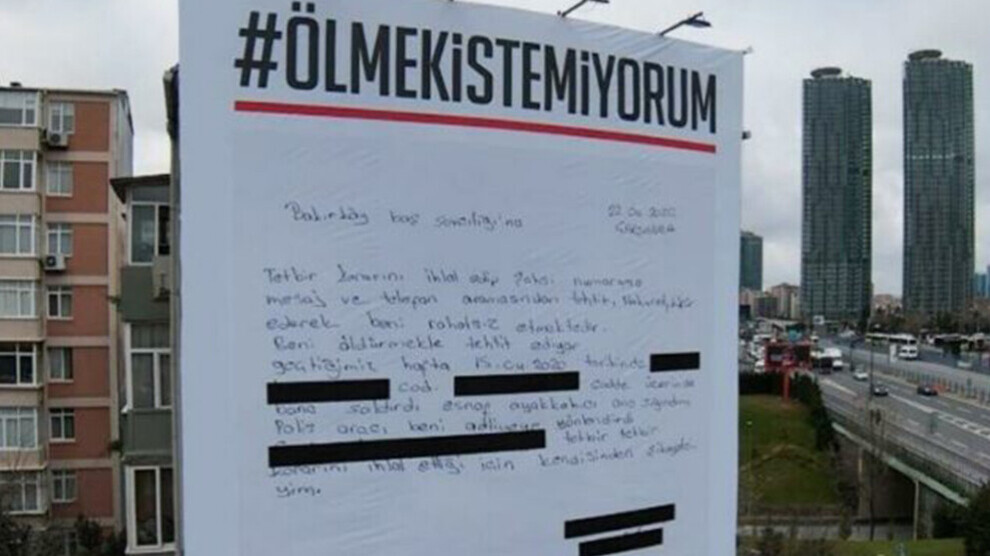 #ÖLMEKiSTEMiYORUM
Bakırköy baş savcılığı'na
22.04.2020
ÇARŞAMBA
Tetbir kararını ihlal edip şahsi numarama
mesaj ve telefon aramasından tehtit,
ederek beni rahatsız etmektedir.
Beni öldürmekle tehtit ediyor
geçtiğimiz hafta 15.04.2020 tarihinde
cad. cadde üzerinde
bana saldırdı esnaf ayakkabıcı
Polis aracı beni adliyeye yönlendirdi
tetbir tetbir
kararını ihlal ettiği için kendisinden şikayetc-
yim.